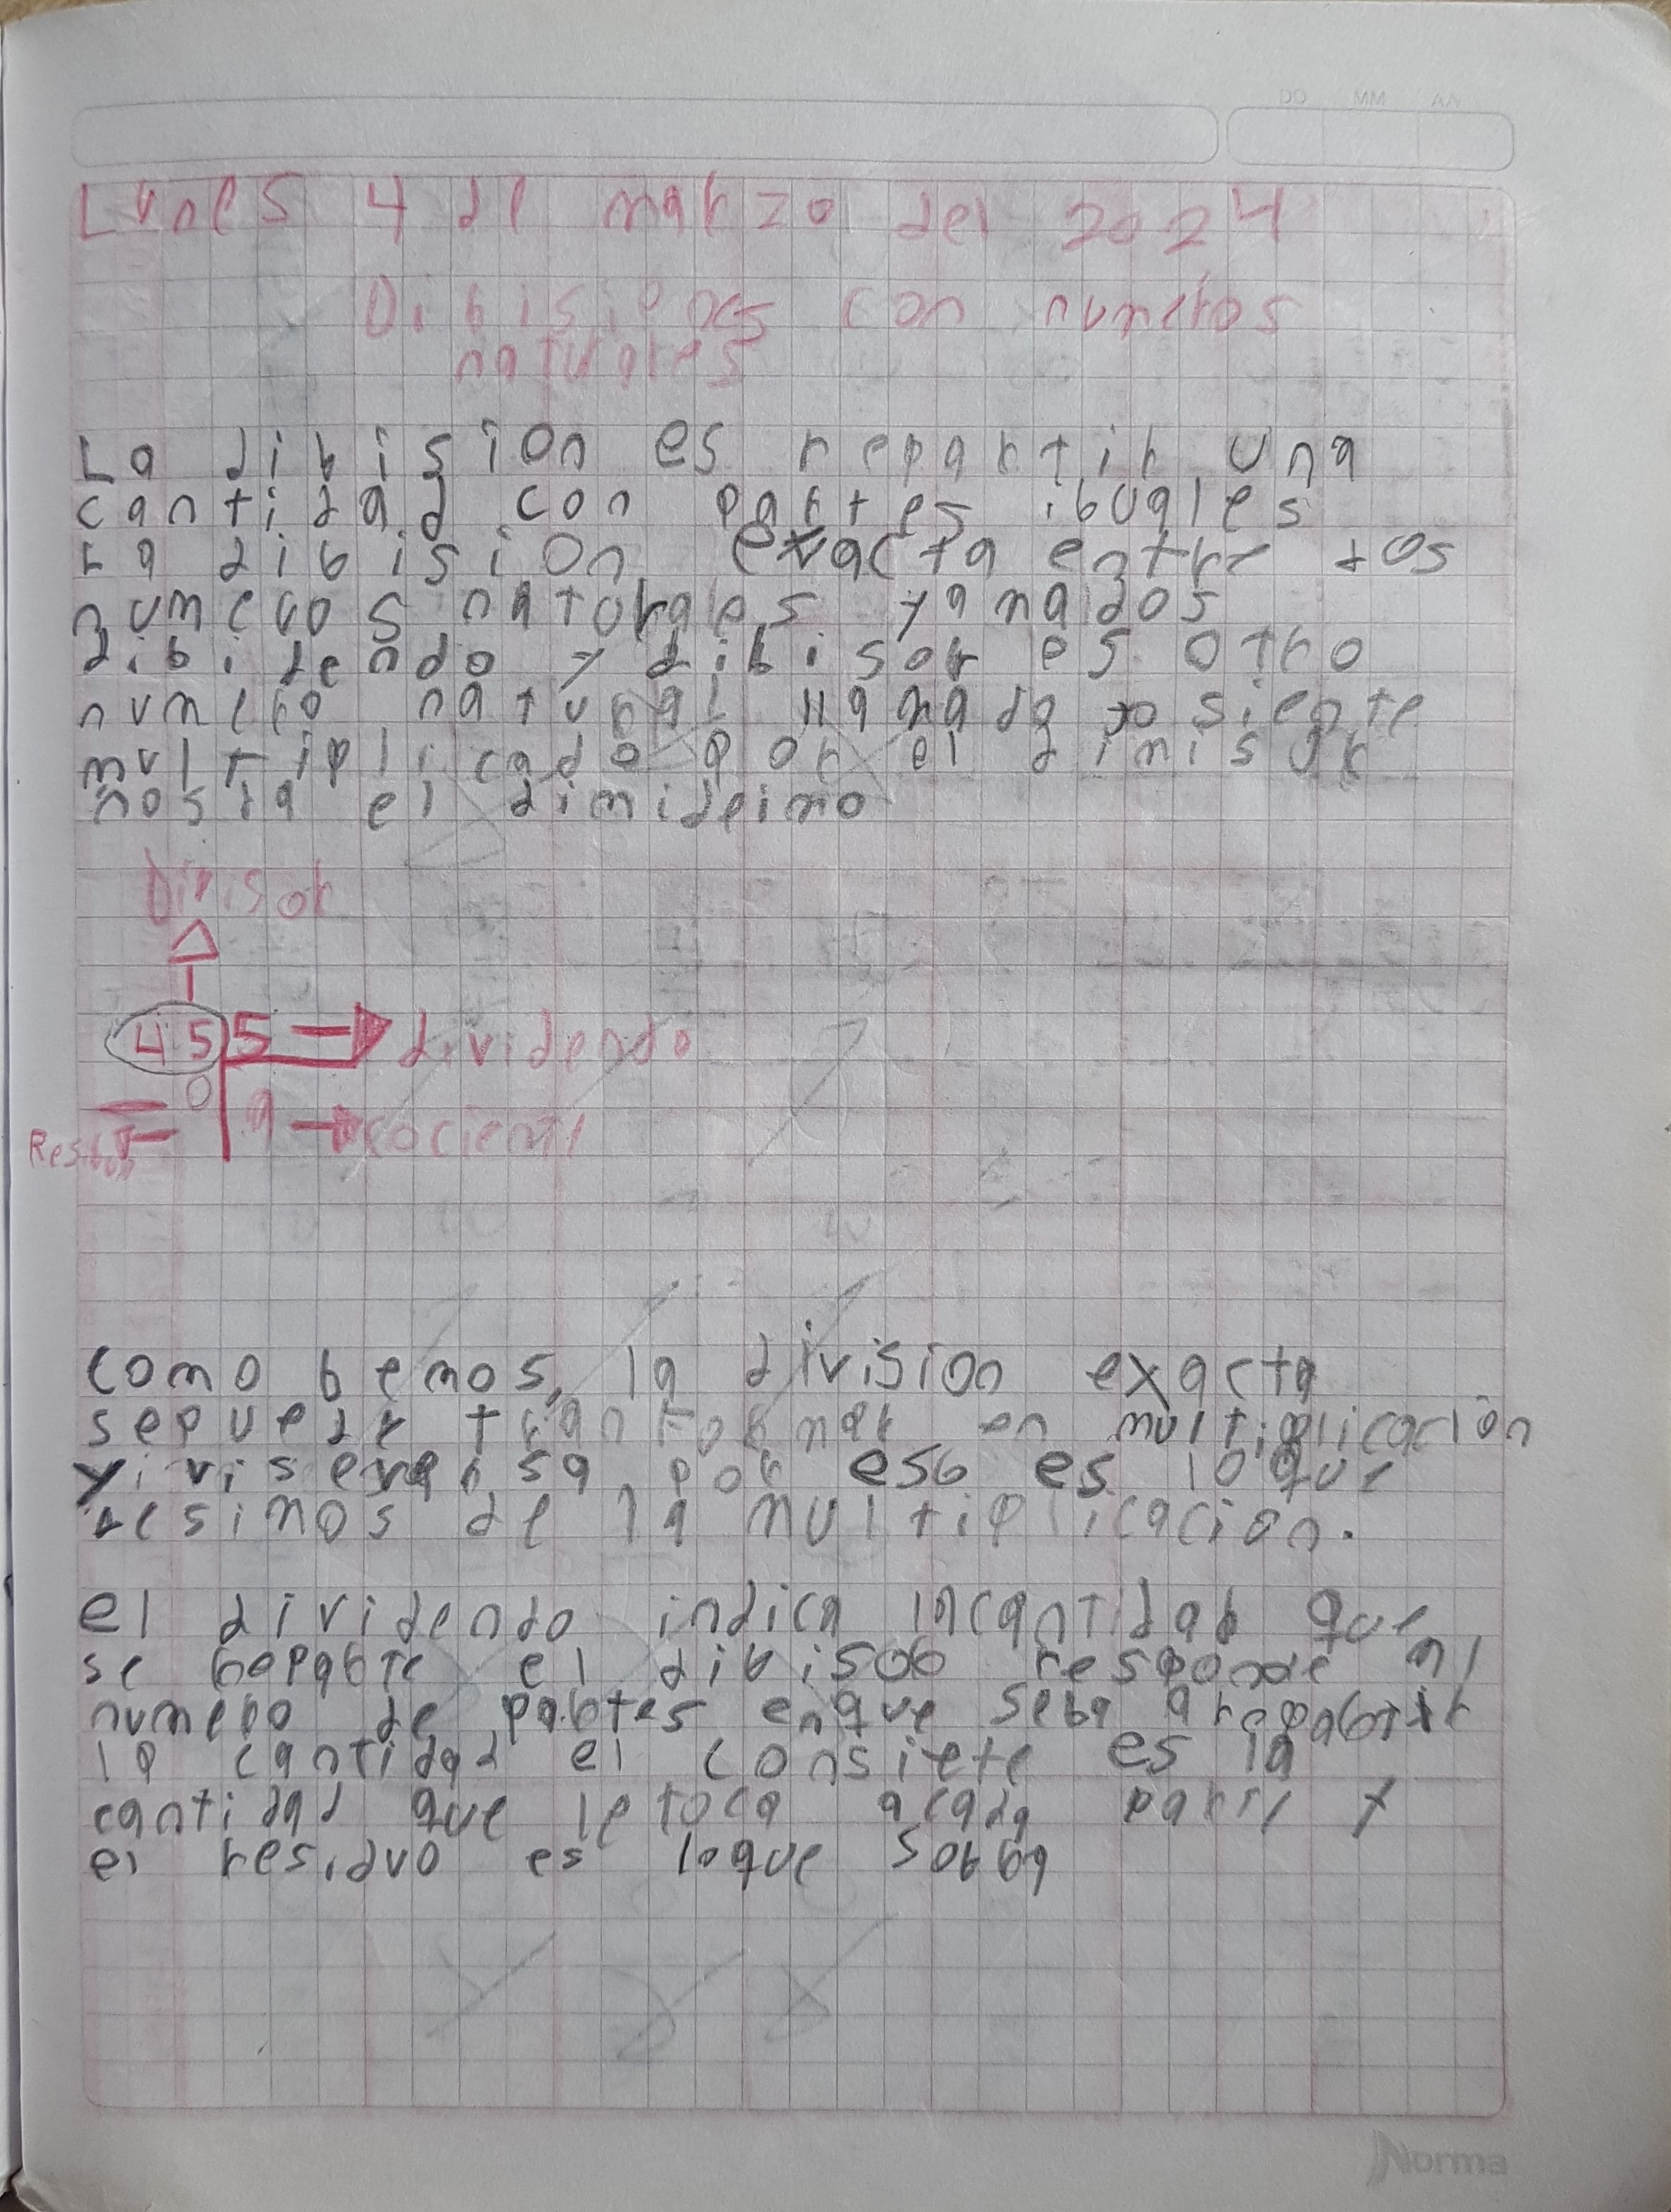 Lunes 4 de marzo del 2024
Dibisiones con numeros
naturales
La dibision es repartir una
cantidad con partes ibuales
La dibision exacta entre dos
numeros naturales yamados
dibidendo y dibisor es otro
numero natural llamado
multiplicado por el dimisor
el dimideimo
Divisor
45 5 dividendo
0 9 cocient
como bemos, la division exacta
sepuede en multiplicación
por eso es loque
de la multiplicacion.
el dividendo indica lacantidad que
se reparte el dibisor responde
numero de partes enque seba arepartir
la cantidad el consiete es la
cantidad que letoca acada parte y
el residuo es loque sobra
Norma